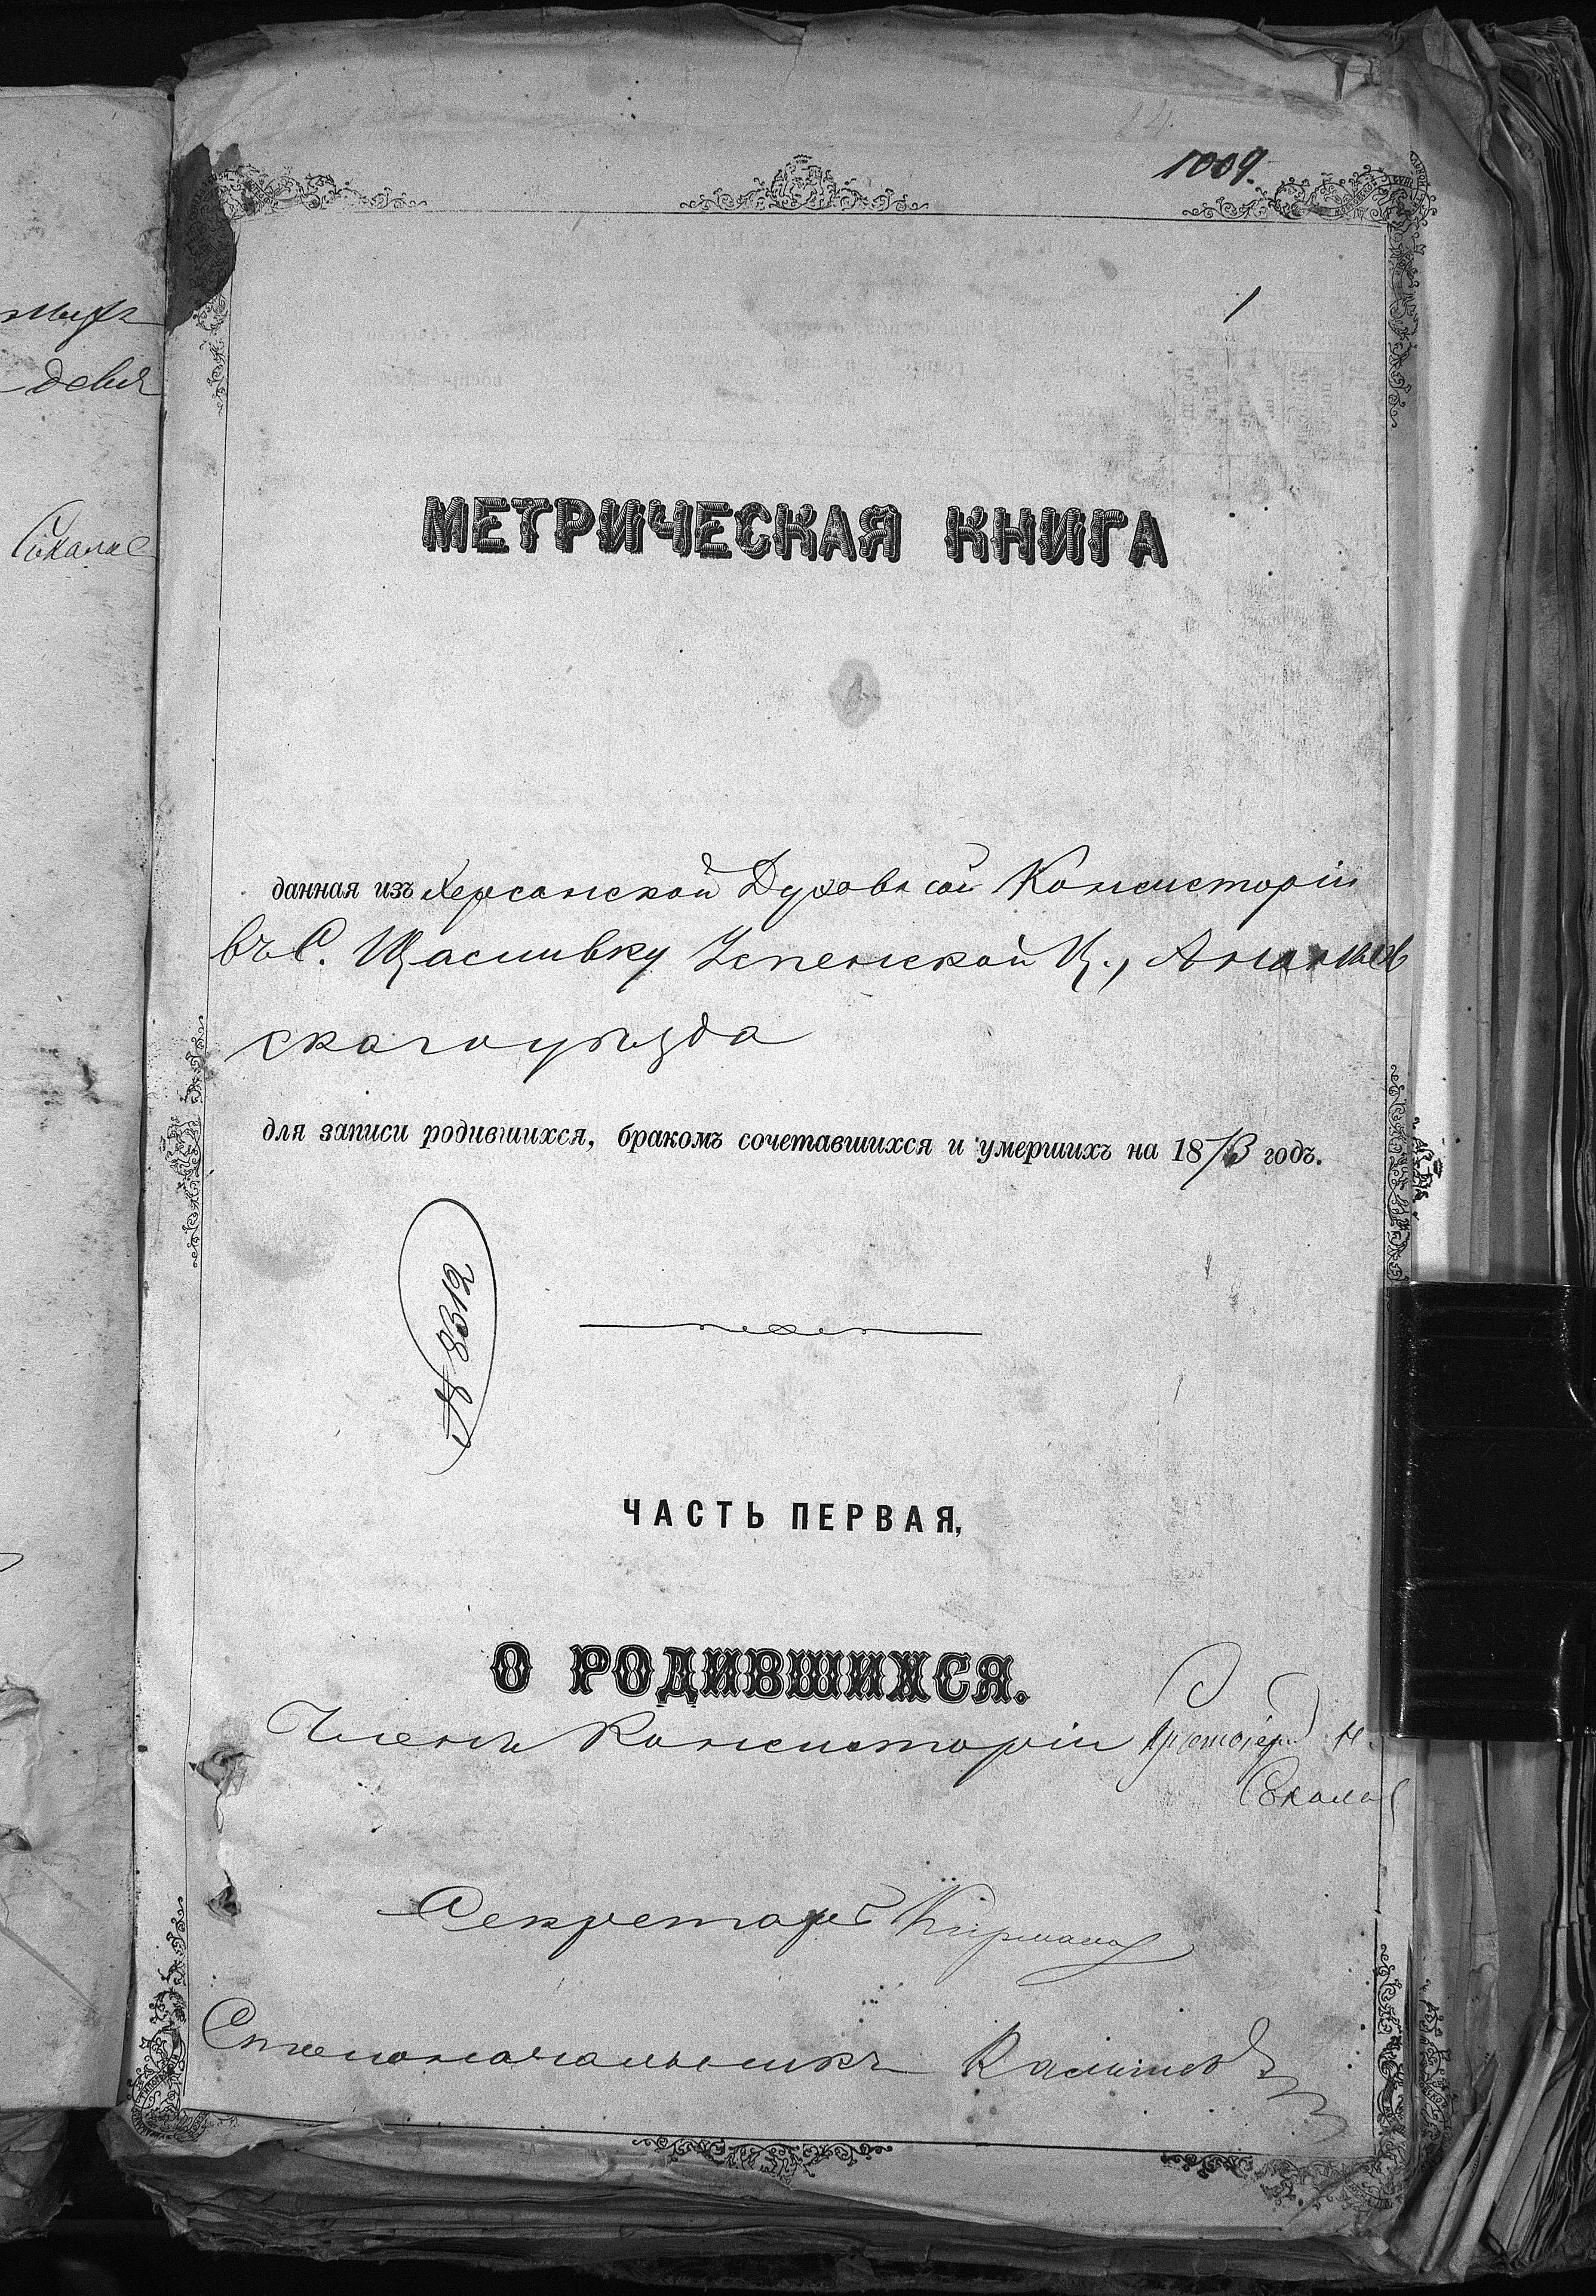 24
1009.
1
МЕТРИЧЕСКАЯ КНИГА
данная изъ Херсонской Духовной Консисторіи
въ С. Щасливку Успенской Ц., Ананьев
скаго уѣзда
для записи родившихся, бракомъ сочетавшихся и умершихъ на 1873 годъ.
№ 8312
ЧАСТЬ ПЕРВАЯ,
О РОДИВШИХСЯ.
Членъ Консисторіи Протоіерей Н.
Соколов
Секретарь
Столоначальникъ